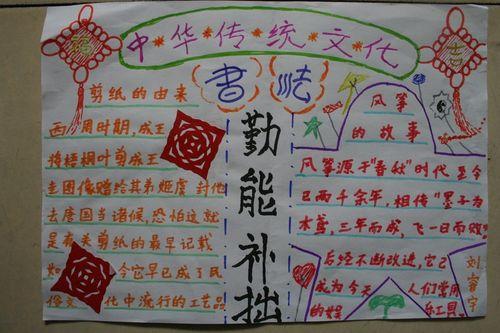 中华传统文化
福
吉
书法
剪纸的由来
西周时期,成王
将梧桐叶剪成王
圭图像赐给其弟姬虞封他
去唐国当诸候,恐怕这就
是有关剪纸的最早记载
如今它早已成了民
俗文化中流行的工艺品
勤能补拙
风筝
的故事
风筝源于"春秋"时代至今
已两千余年,相传"墨子为
木鸢,三年而成,飞一日而败
后经不断改进,它已
成为今天人们常用
的娱乐工具。
刘睿宇